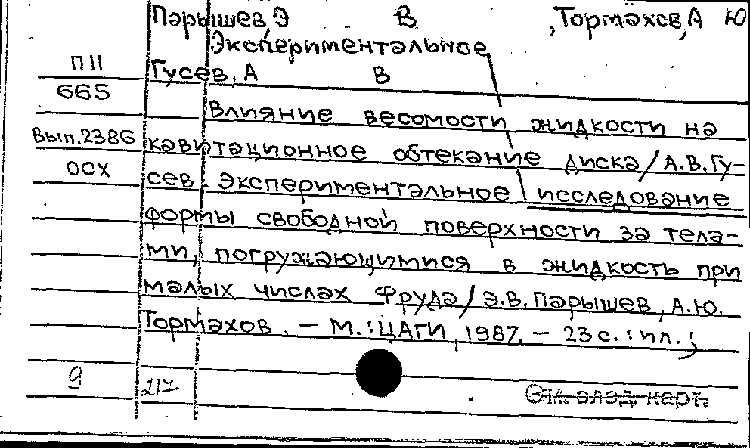 Парышев, Э В ,Тормахов, А Ю
Экспериментальное
П11 Гусев, А В
665
Влияние весомости жидкости на
Вып.2386 кавитационное обтекание диска / А.В.Гу-
осх сев. Экспериментальное исследование
формы свободной поверхности за тела-
ми, погружающимися в жидкость при
малых числах Фруда / Э.В. Парышев, А.Ю.
Тормахов. – М.: ЦАГИ, 1987. – 23 с. : ил.;
9 217
См. след. карт.